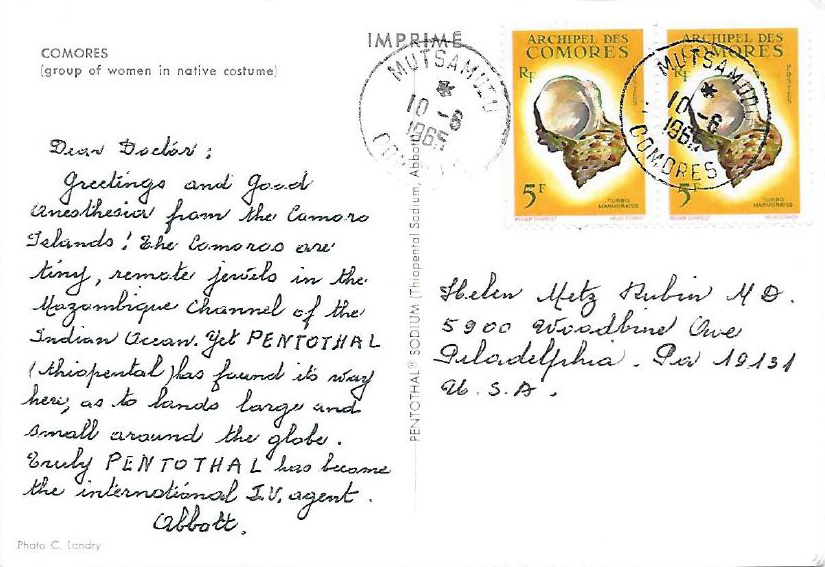 COMORES
(group of women in native costume)
IMPRIMÉ
Dear Doctor:
Greetings and Good
Anesthesia from the Comoro
Islands! The Comoros are
tiny, remote jewels in the
Mozambique Channel of the
Indian Ocean. Yet PENTOTHAL
(thiopental) has found its way
here, as to lands large and
small around the globe.
Truly PENTOTHAL has become
the international I.V. agent.
Abbott.
Photo C. Landry
PENTOTHAL® SODIUM (Thiopental Sodium, Abbott)
MUTSAMUDU
10-6
1965
COMORES
ARCHIPEL DES
COMORES
RF
POSTES
5F
TURBO
MARMORATUS
ARCHIPEL DES
COMORES
RF
POSTES
5F
TURBO
MARMORATUS
MUTSAMUDU
10-6
1965
COMORES
Helen Metz Rubin M D.
5900 Woodbine Ave
Piladelphia. Pa 19131
U.S.A.